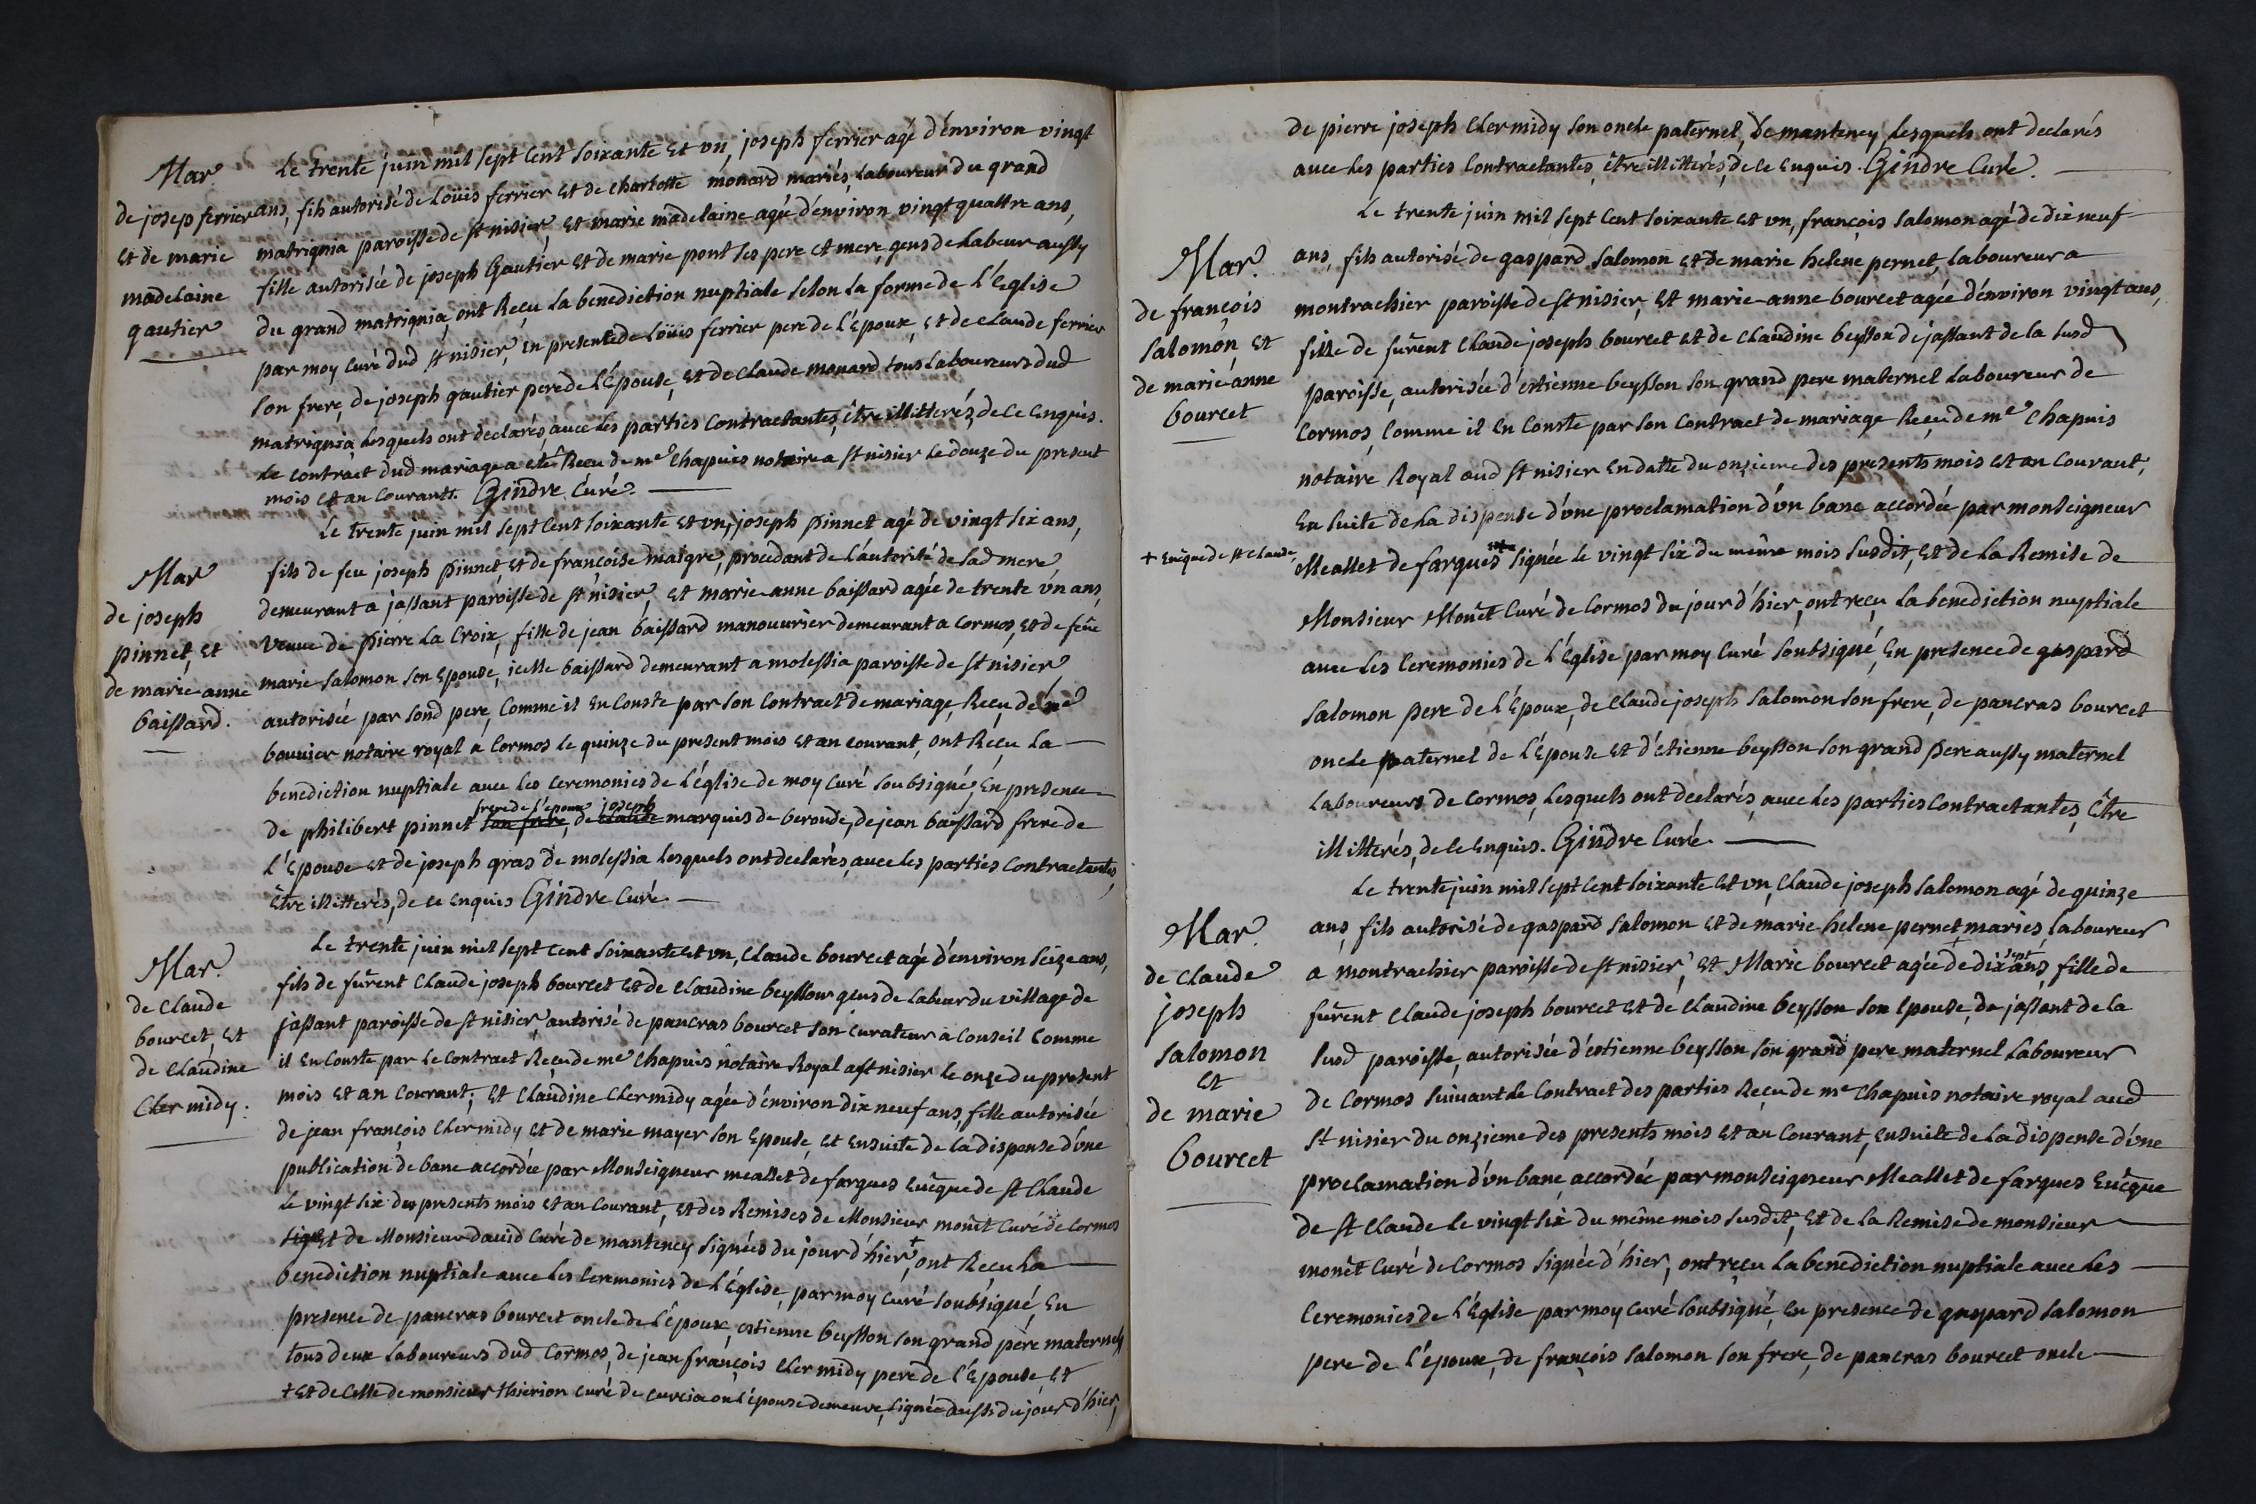 Mar.
de josep ferrier
Et de marie
madelaine
gautier
Le trente juin mil sept Cent soixante Et vn, joseph ferrier agé d'environ vingt
ans, fils autorisé de Loüis ferrier Et de Charlotte monard mariés, Laboureur du grand
matrignia paroisse de st nisier, Et marie madelaine agée d'environ vingt quattre ans,
fille autorisée de joseph Gautier Et de marie pont ses pere et mere, gens de Labeur aussy
du grand matrignia, ont Reçu La benediction nuptiale selon La forme de L'Eglise
par moy Curé dud st nisier, En presente de Loüis ferrier pere de L'Époux, Et de Claude ferrier
son frere, de joseph gautier pere de L'Épouse, Et de Claude monard tous Laboureurs dud
matrignia, Lesquels ont declarés, avec Les parties Contractantes, être illitterés, de Ce Enquis.
Le Contract dud mariage a eté Recu de me Chapuis notaire a st nisier Le douze du present
mois Et an Courants. Gindre Curé.
Mar
de joseph
pinnet, Et
de marie anne
baissard.
Le trente juin mil sept Cent soixante Et vn, joseph pinnet agé de vingt six ans,
fils de feu joseph pinnet, Et de françoise maigre, procedant de L'autorité de Sad mere,
demeurant a jassant paroisse de st nisier, Et marie anne baissard agée de trente vn ans,
Veuve de pierre La Croix, fille de jean baissard manouurier demeurant a Cormos, Et de feüe
marie Salomon son Epouse, icelle baissard demeurant a molessia paroisse de st nisier
autorisée par sond pere, Comme il En Conste par son Contract de mariage, Reçu de me
bouvier notaire royal a Cormos le quinze du present mois Et an courant, ont Reçu La
benediction nuptiale avec Les Ceremonies de L'église de moy Curé soubsigné, En presence
frere de l'epoux joseph
de philibert pinnet son frere, de claude marquis de beroude, de jean baissard frere de
L'Epouse Et de joseph gras de molessia Lesquels ont declarés, avec Les parties Contractantes,
Etre illitterés, de ce Enquis Gindre Curé
Mar.
de Claude
bourcet, Et
de Claudine
Clermidy.
Le trente juin mil sept Cent soixante Et vn, Claude bourcet agé d'environ seize ans,
fils de fûrent Claude joseph bourcet Et de Claudine beysson gens de Labeur du village de
jassant paroisse de st nisier, autorisé de pancras bourcet son Curateur à Conseil Comme
il En Conste par Le Contract Reçu de me Chapuis notaire Royal a st nisier Le onze du present
mois Et an Courant; Et Claudine Clermidy agée d'environ dix neuf ans, fille autorisée
de jean françois Clermidy Et de marie mayer son Epouse, Et Ensuite de La dispense d'vne
publication de banc accordée par Monseigneur meallet de fargues Evêque de st Claude
Le vingt six des presents mois Et an Courant, Et des Remises de Monsieur monêt Curé de Cormos
signé Et de Monsieur david Curé de manteney signées du jour d'hier +, ont Reçu La
benediction nuptiale avec Les Ceremonies de L'Église, par moy Curé soubsigné, En
presence de pancras bourcet oncle de L'époux, estienne beysson son grand père maternel,
tous deux Laboureurs dud Cormos, de jean françois Clermidy pere de L'Epouse, Et
+ Et de Celle de monsieur thierion Curé de curcia ou L'épouse demeure, signée aussi du jour d'hier,
de pierre joseph Clermidy son oncle paternel, de manteney Lesquels ont declarés
avec Les parties Contractantes, être illitterés, de Ce Enquis. Gindre Curé.
Mar.
de françois
Salomon, Et
de marie anne
bourcet
Le trente juin mil sept Cent soixante Et vn, françois Salomon agé de dix neuf
ans, fils autorisé de gaspard Salomon Et de marie helene pernet, Laboureur a
montrachier paroisse de st nisier, Et marie-anne bourcet agée d'environ vingt ans,
fille de fûrent Claude joseph bourcet Et de Claudine beysson de jassant de la susd
paroisse, autorisée d'estienne beysson son grand pere maternel Laboureur de
Cormos, Comme il En Conste par son Contract de mariage Reçu de me Chapuis
notaire Royal aud st nisier En datte du onzieme des presents mois Et an Courant,
En suite de La dispense d'vne proclamation d'vn banc accordée par monseigneur
+ Evêque de st Claude,
Meallet de fargues + signée le vingt six du même mois susdit, Et de La Remise de
Monsieur Monêt Curé de Cormos du jour d'hier, ont reçu La benediction nuptiale
avec Les Ceremonies de L'Eglise par moy Curé soubsigné, En presence de gaspard
Salomon pere de L'Époux, de Claude joseph Salomon son frere, de pancras bourcet
oncle paternel de L'épouse Et d'etienne beysson son grand pere aussy maternel
Laboureurs de Cormos, Lesquels ont declarés, avec Les parties Contractantes, être
illitterés, de Ce Enquis. Gindre Curé
Mar.
de Claude
joseph
Salomon
Et
de marie
bourcet
Le trente juin mil sept Cent soixante Et vn, Claude joseph Salomon agé de quinze
ans, fils autorisé de gaspard Salomon Et de marie helene pernet mariés, Laboureur
a montrachier paroisse de st nisier, Et Marie bourcet agée de dix sept ans, fille de
fûrent Claude joseph bourcet Et de Claudine beysson son Epouse, de jassant de la
susd paroisse, autorisée d'estienne beysson son grand pere maternel Laboureur
de Cormos suivant Le Contract des parties Reçu de me Chapuis notaire royal aud
st nisier du onzieme des presents mois Et an Courant, Ensuite de La dispense d'vne
proclamation d'vn banc accordée par monseigneur Meallet de fargues Evêque
de st Claude Le vingt six du même mois susdit, Et de La Remise de monsieur
monêt Curé de Cormos signée d'hier, ont reçu La benediction nuptiale avec Les
Ceremonies de L'Église par moy Curé soubsigné, En presence de gaspard Salomon
pere de L'époux, de françois Salomon son frere, de pancras bourcet oncle